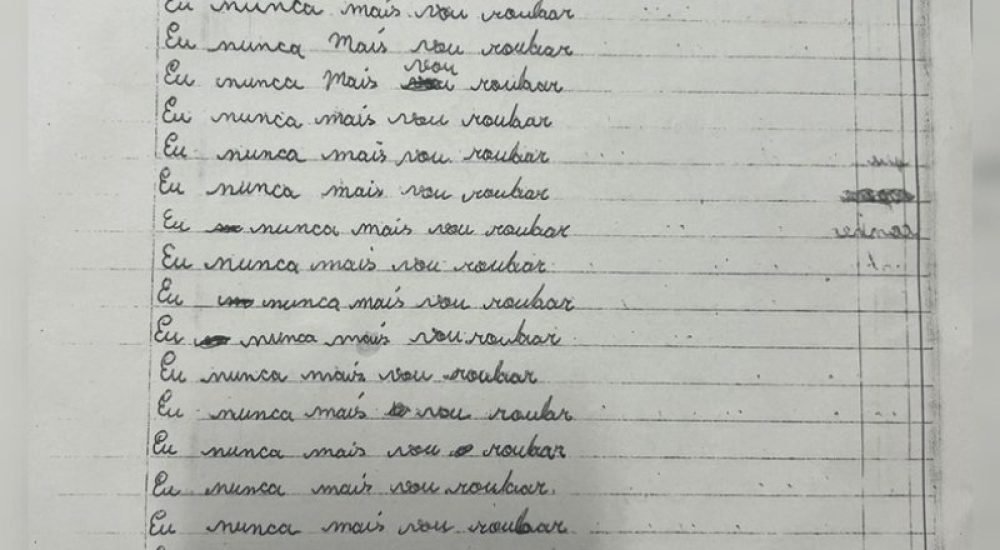 Eu nunca mais vou roubar
Eu nunca Mais vou roubar
Eu nunca Mais vou roubar
Eu nunca mais vou roubar
Eu nunca mais vou roubar
Eu nunca mais vou roubar
Eu nunca mais vou roubar
Eu nunca mais vou roubar
Eu nunca mais vou roubar
Eu nunca mais vou roubar
Eu nunca mais vou roubar
Eu nunca mais vou roubar
Eu nunca mais vou roubar
Eu nunca mais vou roubar.
Eu nunca mais vou roubar